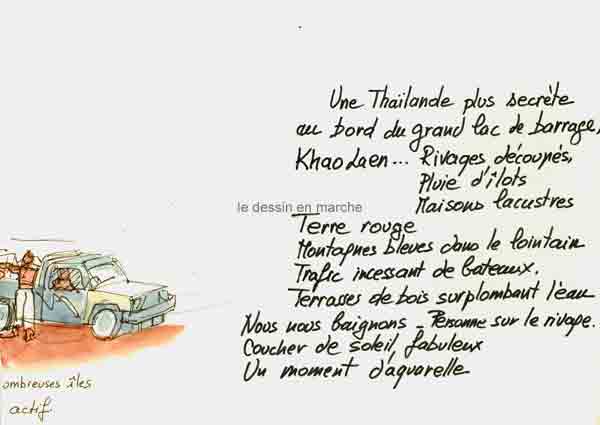 Une Thaïlande plus secrète
au bord du grand lac de barrage,
Khao Laen... Rivages découpés,
Pluie d'îlots
Maisons lacustres
le dessin en marche
Terre rouge
Montagnes bleues dans le lointain
Trafic incessant de bateaux.
Terrasses de bois surplombant l'eau
Nous nous baignons - Personne sur le rivage.
Coucher de soleil fabuleux
Un moment d'aquarelle
ombreuses îles
actif